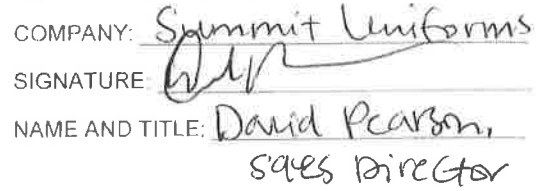 COMPANY: Summit Uniforms
SIGNATURE
NAME AND TITLE: David Pearson,
Sales Director